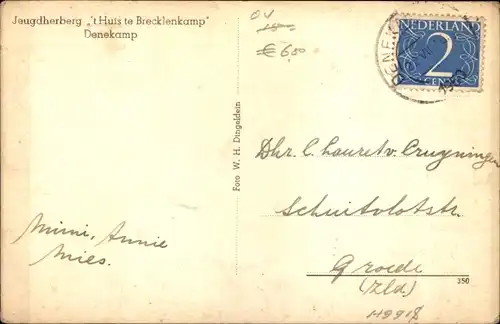 Jeugdherberg „'t Huis te Brecklenkamp"
Denekamp
OV
€ 6,50
NEDERLAND
2
CENT
DENEK
Foto W. H. Dingeldein
Dhr. C. Lauret v. Cruyningen
Schuitvlotstr.
Groede
(Zld.)
Mimi, Annie
Mies.
350